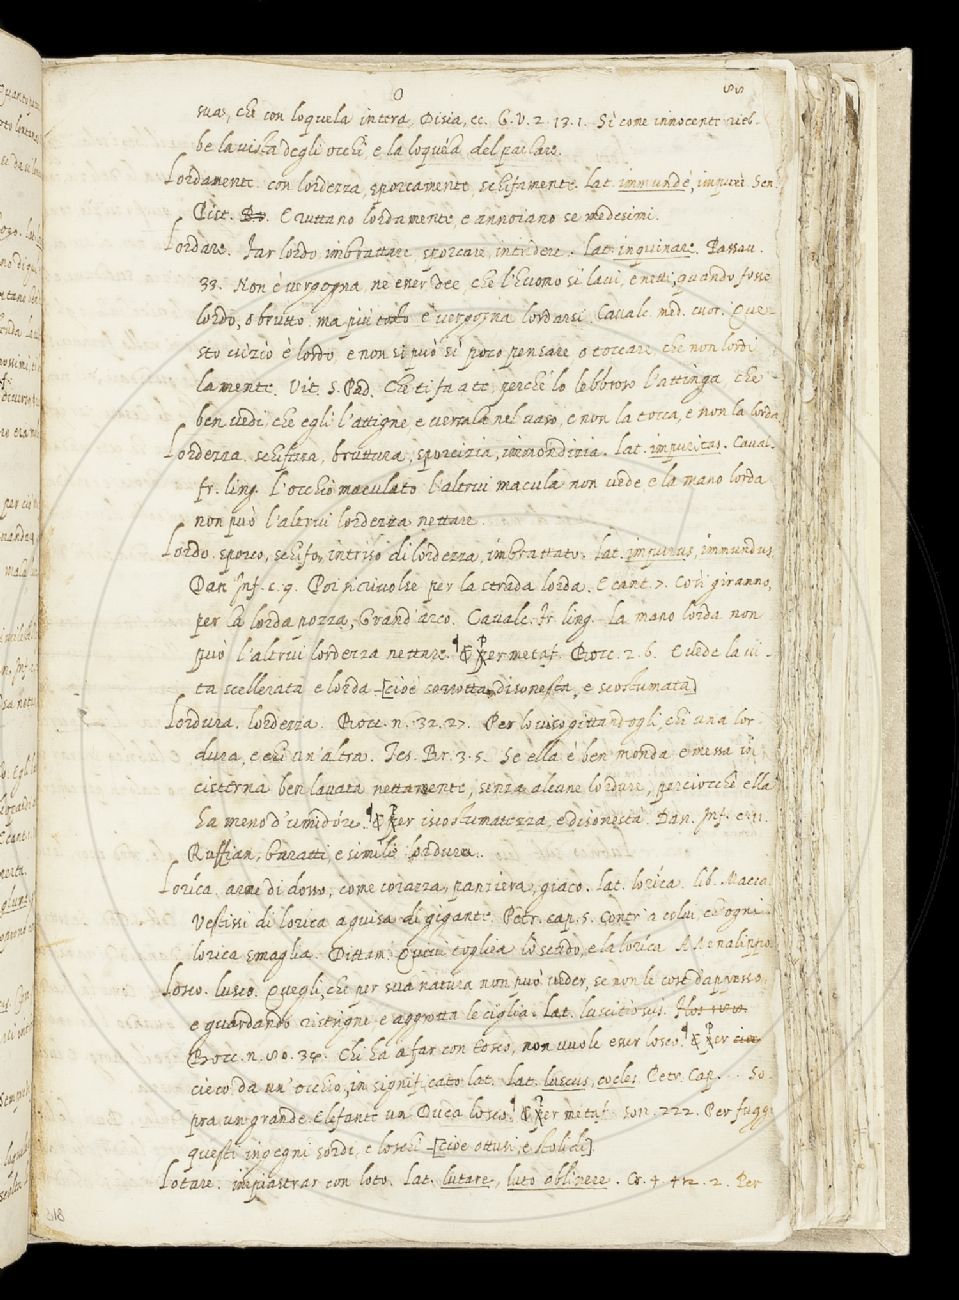 O
88
sua, che con loquela intera, Disia, ec. G.V. 2. 13. 1. Sì come innocente rieb-
be la vista degli occhi, e la loquela del parlare.
Lordamente. con lordezza, sporcamente, schifamente. Lat. immundè, impurè. Sen.
Pist. E ruttano lordamente, e annoiano se medesimi.
Lordare. Far lordo imbrattare, sporcare, intridere. Lat. inquinare. Passau.
33. Non è vergogna, nè esser dee, che l'huomo si lavi, e netti, quando fosse
lordo, o brutto, ma più tosto è vergogna lordarsi. Cavale. med. cuor. Que-
sto vizio è lordo, e non si può sì poco pensare, o toccare, che non lordi
la mente. Vit. S. Pad. Che ti fa a te, perchè lo lebbroso l'attinga che
ben vedi, che egli l'attigne, e versala nel vaso, e non la tocca, e non la lorda.
Lordezza. schifezza, bruttura, sporcizia, immondizia. Lat. impuritas. Caval.
fr. ling. L'occhio maculato l'altrui macula non vede, e la mano lorda
non può l'altrui lordezza nettare.
Lordo. sporco, schifo, intriso di lordezza, imbrattato. Lat. impurus, immundus.
Dan. Inf. c. 9. Poi si rivolse per la strada lorda. E cant. 7. Così giranno,
per la lorda pozza, Grand'arco. Cavale. fr. ling. La mano lorda non
può l'altrui lordezza nettare. ¶ Per metaf. Bocc. 2. 6. E vede la vi-
ta scellerata e lorda [cioè corrotta, disonesta, e scostumata]
Lordura. lordezza. Bocc. n. 32. 27. Per lo viso gittandogli, chi una lor-
dura, e chi un'altra. Tes. Br. 3. 5. Se ella è ben monda e messa in
cisterna ben lavata nettamente, senza alcune lordure, perciocchè ella
ha meno d'umidóre. ¶ Per iscostumatezza, e disonestà. Dan. Inf. c. 11.
Ruffian, baratti, e simile lordura.
Lorica. arme di dosso, come corazza, panziera, giaco. Lat. lorica. lib. Macca.
Vestissi di lorica a guisa di gigante. Petr. cap. 5. Contr'a colui, ch'ogni
lorica smaglia. Dittam. Quivi toglica lo scudo, e la lorica
Losco. lusco. Quegli, che per sua natura non può veder, se non le cose d'appresso,
e guardando ristrigne, e aggrotta le ciglia. Lat. luscitiosus.
Bocc. n. 80. 34. Chi ha a far con tosco, non vuole esser losco. ¶ Per
cieco da un'occhio, in significato lat. Lat. luscus, cocles. Petr. Cap. . . So-
pra un grande Elefante un Duca losco. ¶ Per metaf. son. 222. Per fuggi
questi ingegni sordi, e loschi [cioè ottusi, e stolidi]
Lotare. impiastrar con loto. Lat. lutare, luto oblinere. Cr. 4. 42. 2. Per
318